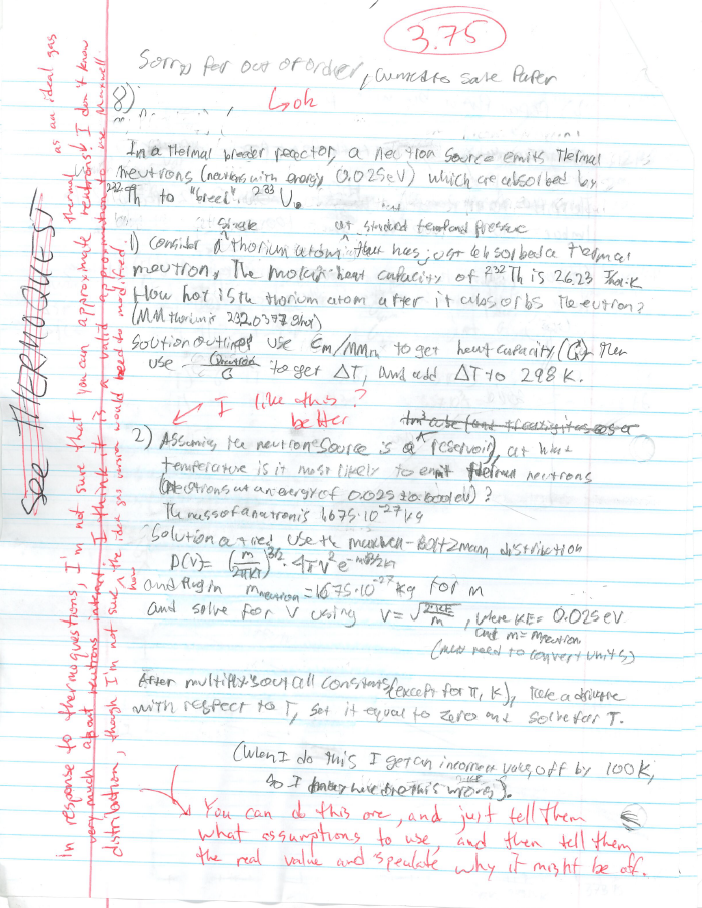 3.75
Sorry for out of order, wanted to save Paper
8)
In a thermal breeder reactor, a neutron source emits thermal
neutrons (neutrons with energy 0.025eV) which are absorbed by
232Th to "breed" 233U.
single at standard temp and pressure
1) Consider a thorium atom that has just absorbed a thermal
neutron, The molar heat capacity of 232Th is 26.23 J/mol·K
How hot is the thorium atom after it absorbs the neutron?
(MM thorium is 232.0377 g/mol)
Solution outline: use Cm/MMTh to get heat capacity (C), then
use Qneutron/C to get ΔT, and add ΔT to 298 K.
I like this ?
better
2) Assuming the neutron source is a reservoir, at what
temperature is it most likely to emit thermal neutrons
(neutrons at an energy of 0.025 eV)?
The mass of a neutron is 1.675·10^-27 kg
Solution: use the maxwell-Boltzmann distribution
P(v)= (m/2πkT)^3/2 · 4πv^2 e^-mv^2/2kT
and Plug in mneutron = 1.675·10^-27 kg for m
and solve for V using V=√2·KE/m, where KE= 0.025eV
and m=mneutron
(may need to convert units)
After multiplying out all constants (except for π, k), take a derivative
with respect to T, set it equal to zero and solve for T.
(When I do this I get an incorrect value, off by 100K,
so I have done this wrong).
You can do this one, and just tell them
what assumptions to use, and then tell them
the real value and speculate why it might be off.
See THERMOQUEST
in response to thermoquestions, I'm not sure that you can approximate thermal as an ideal gas
very much about neutrons interact. I think it is a valid approximation to use Maxwell
neutrons! I don't know
distribution, though I'm not sure how the ideal gas version would need to modified